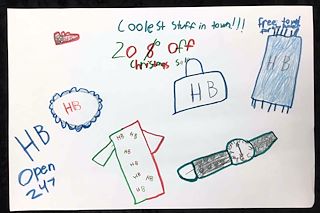 Coolest stuff in town!!!
free towel
20 % Off
Christmas Sale
HB
HB
HB
HB
HB
HB
HB
HB
HB
HB
HB
Open
24/7